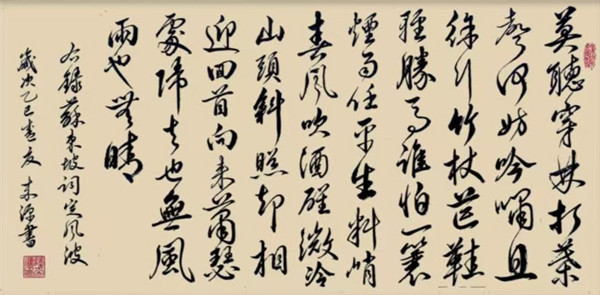 莫聽穿林打葉
聲何妨吟嘯且
徐行竹杖芒鞋
輕勝馬誰怕一蓑
煙雨任平生料峭
春風吹酒醒微冷
山頭斜照却相
迎回首向來蕭瑟
處歸去也無風
雨也無晴
右錄蘇東坡詞定風波
歲次乙巳書